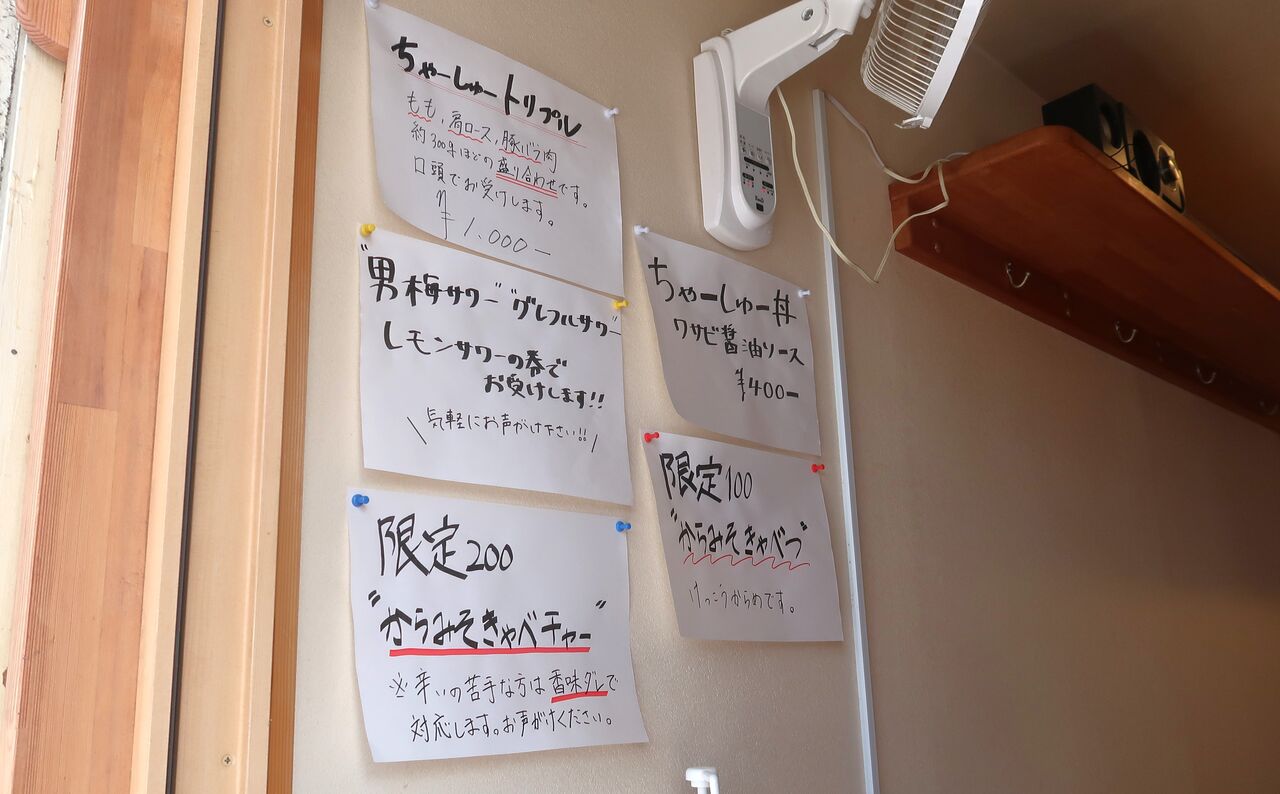 ちゃーしゅートリプル
もも、肩ロース、豚バラ肉
約300gほどの盛り合わせです。
口頭でお受けします。
¥1,000ー
"男梅サワー" "グレフルサワー"
レモンサワーの券で
お受けします!!
\気軽にお声がけ下さい!!/
限定200
"からみそきゃべチャー"
※辛いの苦手な方は香味ダレで
対応します。お声がけください。
ちゃーしゅー丼
ワサビ醤油ソース
¥400ー
限定100
"からみそきゃべつ"
けっこうからめです。